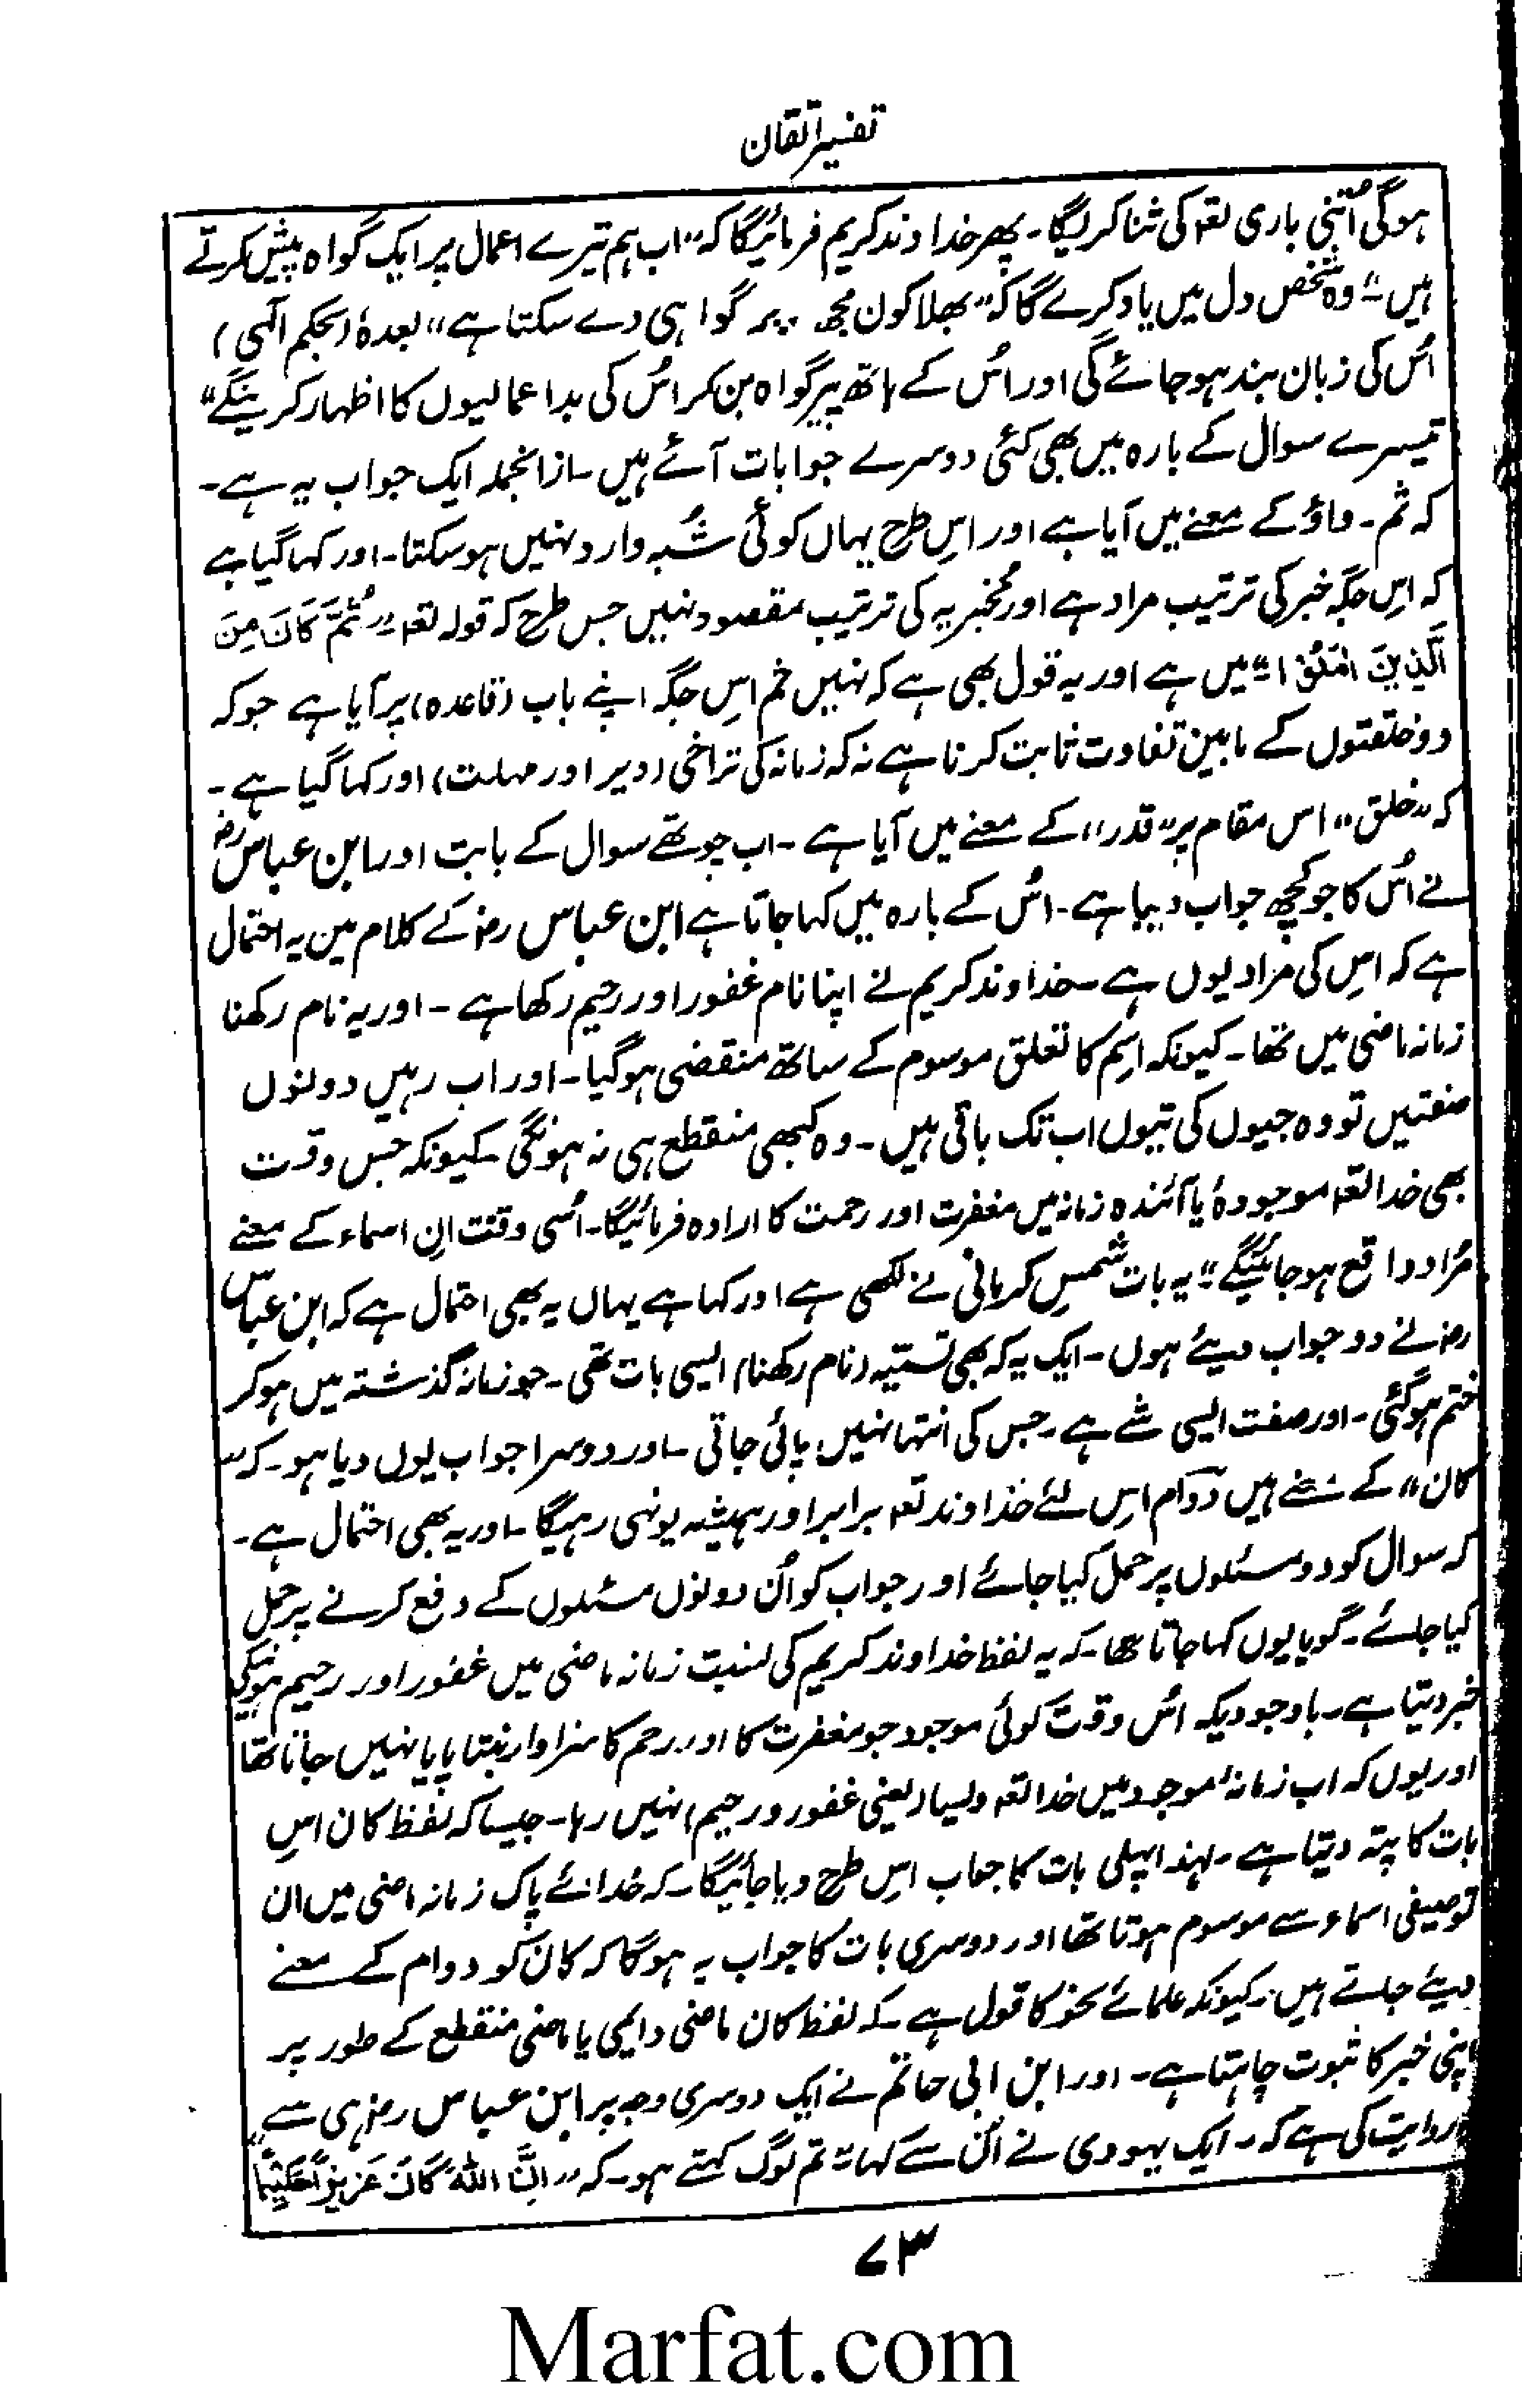 تفسیر اتقان
ہوگی اُتنی باری تعہ کی ثنا کرلیگا۔ پھر خداوند کریم فرمائیگا کہ "اب ہم تیرے اعمال پر ایک گواہ پیش کرتے
ہیں" وہ شخص دل میں یاد کرے گا کہ "بھلا کون مجھ پر گواہی دے سکتا ہے" بعدہٗ (بحکم الٰہی)
اُس کی زبان بند ہوجائے گی اور اُس کے ہاتھ پیر گواہ بن کر اُس کی بداعمالیوں کا اظہار کرینگے"
تیسرے سوال کے بارہ میں بھی کئی دوسرے جوابات آئے ہیں۔ ازانجملہ ایک جواب یہ ہے۔
کہ ثم۔ واؤ کے معنے میں آیا ہے اور اِس طرح یہاں کوئی شُبہ وارد نہیں ہوسکتا۔ اور کہا گیا ہے
کہ اِس جگہ خبر کی ترتیب مراد ہے اور مُخبر بہ کی ترتیب مقصود نہیں جس طرح کہ قولہ تعہ "ثُمَّ کَانَ مِنَ
الَّذِینَ اٰمَنُوْا" میں ہے اور یہ قول بھی ہے کہ نہیں ثم اِس جگہ اپنے باب (قاعدہ) پر آیا ہے جو کہ
دو خلقتوں کے مابین تفاوت ثابت کرنا ہے نہ کہ زمانہ کی تراخی (دیر اور مہلت) اور کہا گیا ہے۔
کہ "خلق" اس مقام پر "قدر" کے معنے میں آیا ہے۔ اب چوتھے سوال کے بابت اور ابن عباس رض
نے اُس کا جو کچھ جواب دیا ہے۔ اُس کے بارہ میں کہا جاتا ہے ابن عباس رض کے کلام مین یہ احتمال
ہے کہ اِس کی مراد یوں ہے۔ خداوند کریم نے اپنا نام غفور اور رحیم رکھا ہے۔ اور یہ نام رکھنا
زمانہ ماضی میں تھا۔ کیونکہ اِسم کا تعلق موسوم کے ساتھ منقضی ہوگیا۔ اور اب رہیں دونوں
صفتیں تو وہ جیوں کی تیوں اب تک باقی ہیں۔ وہ کبھی منقطع ہی نہ ہونگی۔ کیونکہ جس وقت
بھی خدا تعہ موجودہ یا آئندہ زمانہ میں مغفرت اور رحمت کا ارادہ فرمائیگا۔ اُسی وقت اِن اسماء کے معنے
مُراد واقع ہوجائینگے" یہ بات شمس کرمانی نے لکھی ہے اور کہا ہے یہاں یہ بھی احتمال ہے کہ ابن عباس
رض نے دو جواب دیئے ہوں۔ ایک یہ کہ بھی تسمیہ (نام رکھنا) ایسی بات تھی۔ جو زمانہ گذشتہ میں ہوکر
ختم ہوگئی۔ اور صفت ایسی شے ہے۔ جس کی انتہا نہیں پائی جاتی۔ اور دوسرا جواب یوں دیا ہو۔ کہ "
کان" کے معنے ہیں دوام اِس لئے خداوند تعہ برابر اور ہمیشہ یونہی رہیگا۔ اور یہ بھی احتمال ہے۔
کہ سوال کو دو مسئلوں پر حمل کیا جائے اور جواب کو اُن دونوں مسئلوں کے دفع کرنے پر حمل
کیا جائے۔ گویا یوں کہا جاتا تھا۔ کہ یہ لفظ خداوند کریم کی نسبت زمانہ ماضی میں غفور اور رحیم ہونیکی
خبر دیتا ہے۔ باوجودیکہ اُس وقت کوئی موجود جو مغفرت کا اور رحم کا سزاوار بنتا پایا نہیں جاتا تھا
اور یوں کہ اب زمانہ موجود میں خدا تعہ ویسا (یعنی غفور و رحیم) نہیں رہا۔ جیسا کہ لفظ کان اِس
بات کا پتہ دیتا ہے۔ لہذا پہلی بات کا جواب اِس طرح دیا جائیگا۔ کہ خدائے پاک زمانہ ماضی میں ان
توصیفی اسماء سے موسوم ہوتا تھا اور دوسری بات کا جواب یہ ہوگا کہ کان کو دوام کے معنے
دیئے جاتے ہیں۔ کیونکہ علمائے نحو کا قول ہے۔ کہ لفظ کان ماضی دائمی یا ماضی منقطع کے طور پر
اپنی خبر کا ثبوت چاہتا ہے۔ اور ابن ابی حاتم نے ایک دوسری وجہ پر ابن عباس رض ہی سے
روایت کی ہے کہ۔ ایک یہودی نے اُن سے کہا" تم لوگ کہتے ہو۔ کہ "اِنَّ اللّٰہَ کَانَ عَزِیزاً حَکِیْماً"
۷۳
Marfat.com